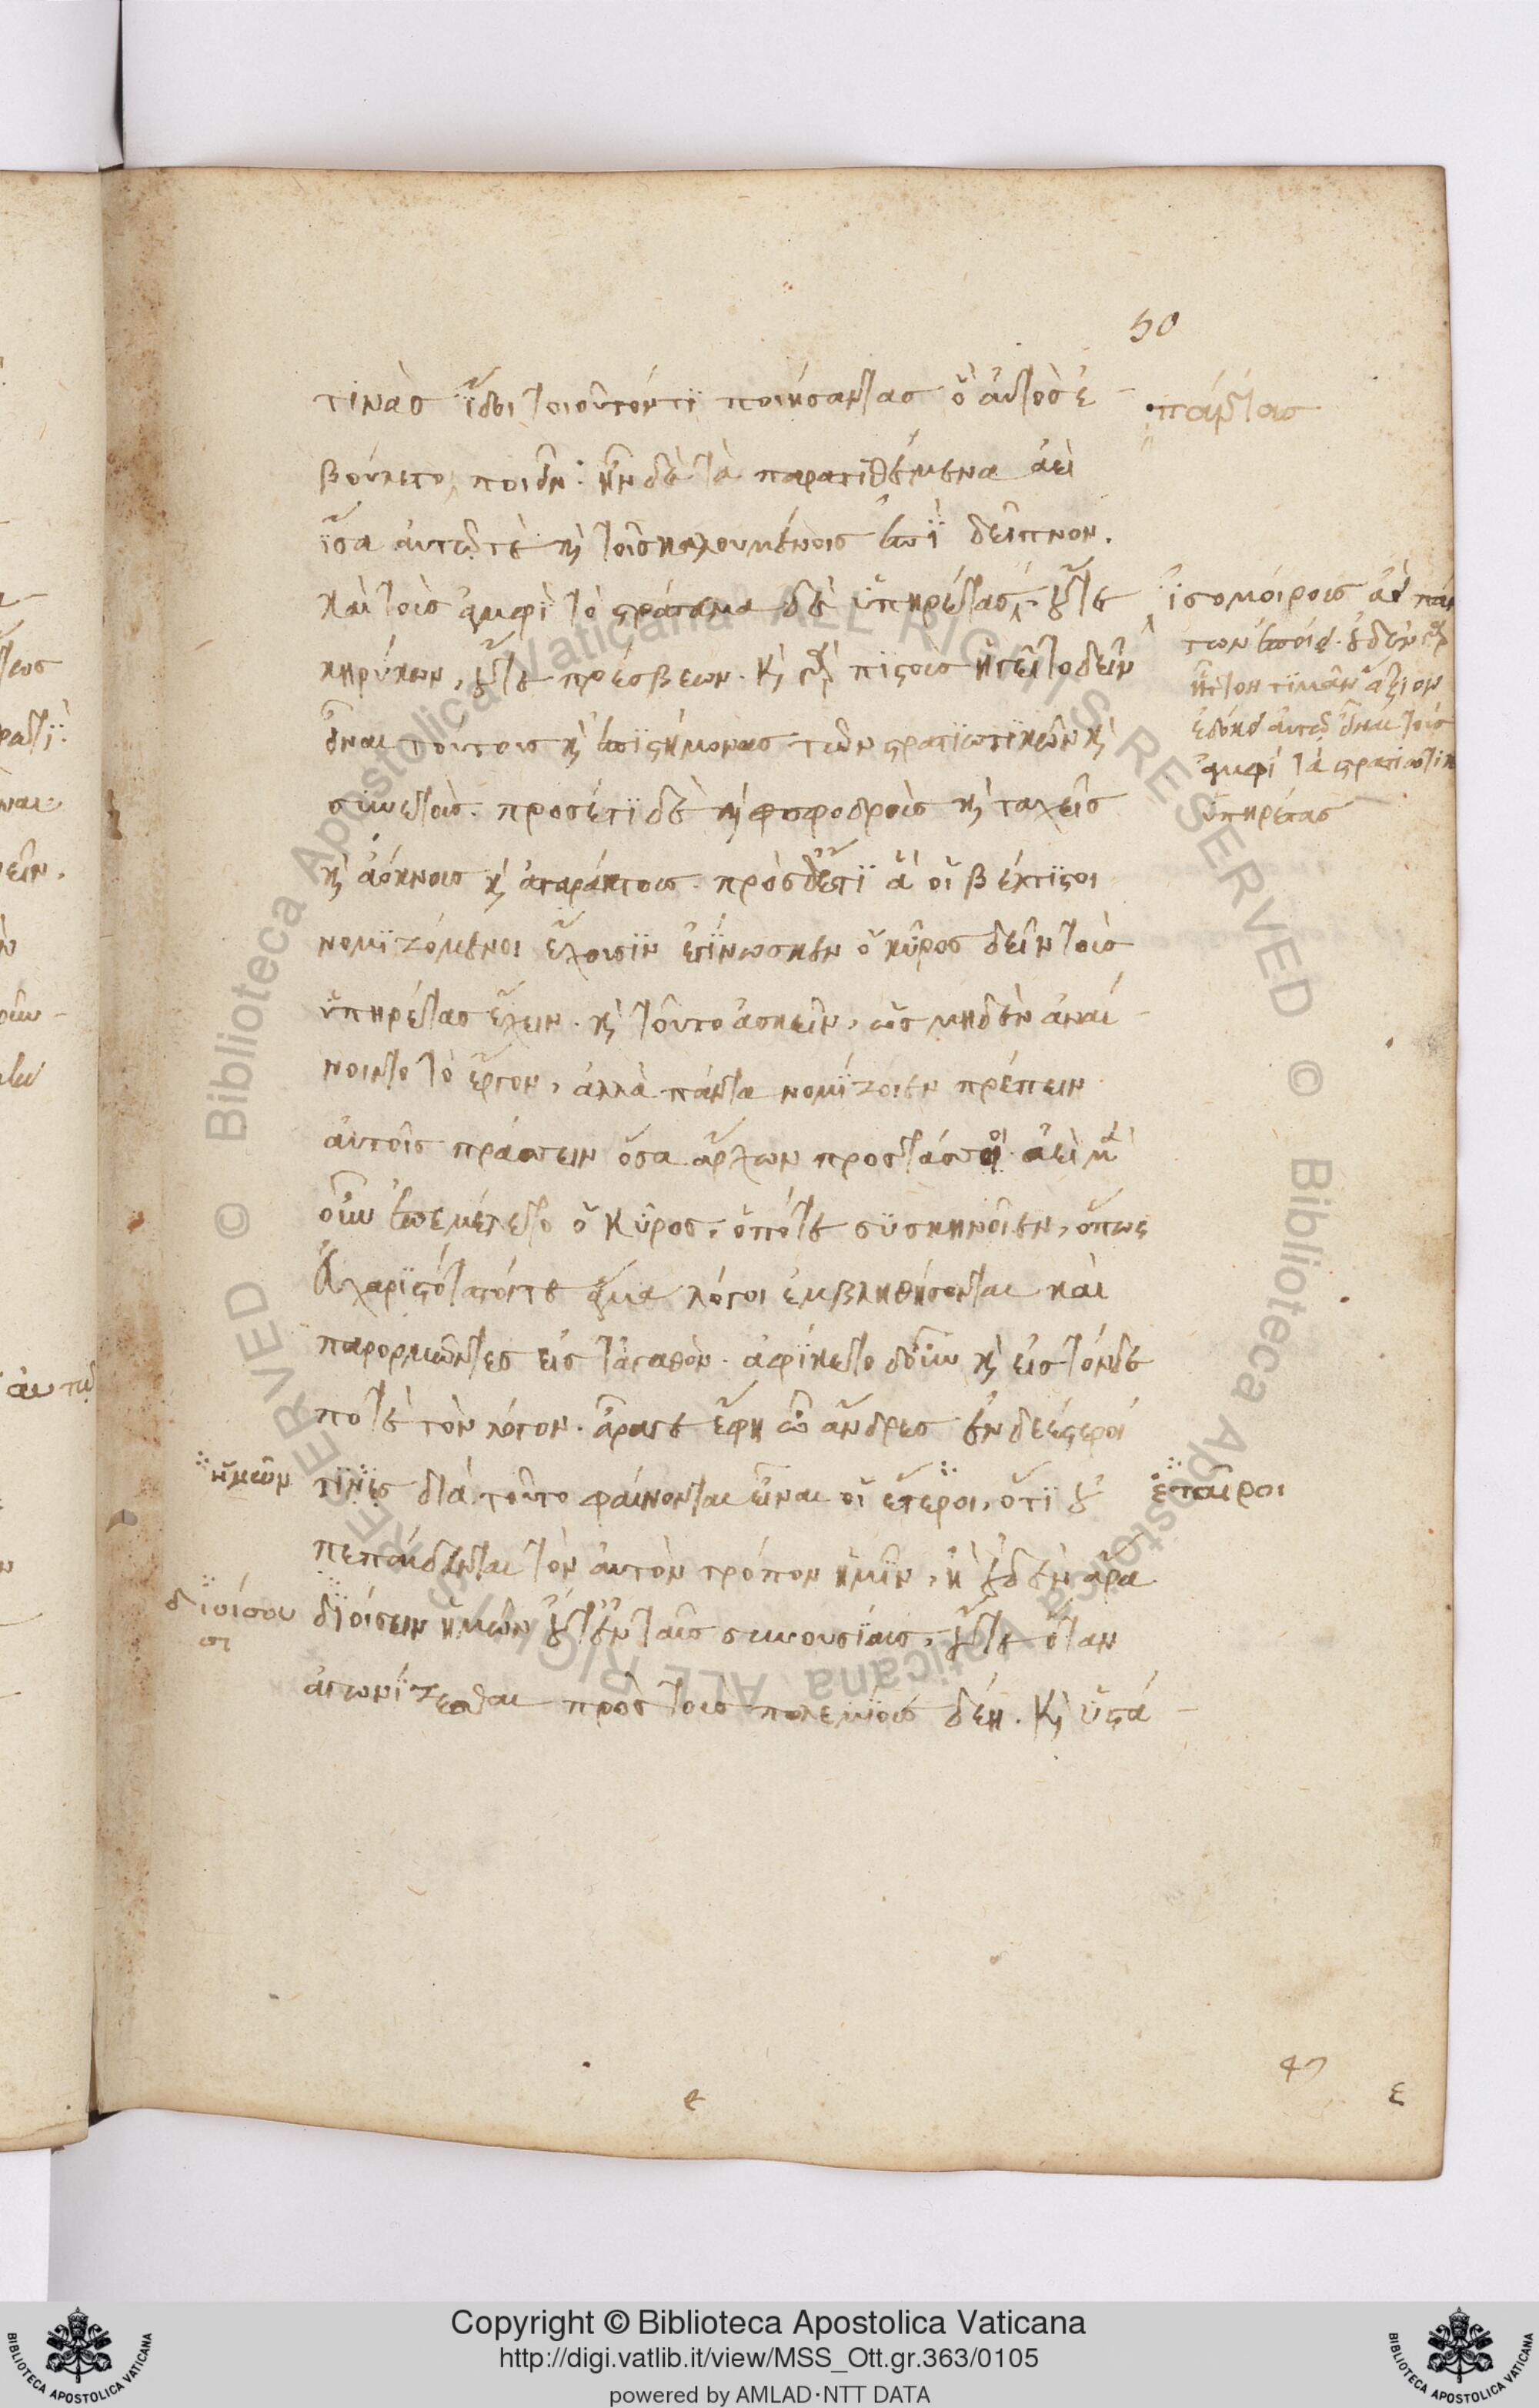 50
τινὰς ἴδοι τοιοῦτόν τι ποιήσαντας ὃ αὐτὸς ἐ-
πάντας
βούλετο, ποιεῖν· ἦν δὲ τὰ παρατιθέμενα ἀεὶ
ἴσα αὐτῷ τε καὶ τοῖς καλουμένοις ἐπὶ δεῖπνον.
καὶ τοὺς ἀμφὶ τὸ στράτευμα δὲ ὑπηρέτας, οὔτε
ἰσομοίρους ἀεὶ πάν
των ἐποίει. οὐδὲν γὰρ
ἧττον τιμᾶν ἄξιον
ἐδόκει αὐτῷ εἶναι τοὺς
ἀμφὶ τὰ στρατιωτικ
ὑπηρέτας
κηρύκων, οὔτε πρέσβεων. καὶ γὰρ πιστοὺς ἡγεῖτο δεῖν
εἶναι τούτους καὶ ἐπιστήμονας τῶν στρατιωτικῶν καὶ
συνετοὺς. προσέτι δὲ καὶ σφοδροὺς καὶ ταχεῖς
καὶ ἀόκνους καὶ ἀταράκτους. πρὸς δ' ἔτι ἃ οἱ βέλτιστοι
νομιζόμενοι ἔχουσιν ἐγίνωσκεν ὁ κῦρος δεῖν τοὺς
ὑπηρέτας ἔχειν. καὶ τοῦτο ἀσκεῖν, ὡς μηδὲν ἀναί-
νοιντο τὸ ἔργον, ἀλλὰ πάντα νομίζοιεν πρέπειν
αὐτοῖς πράττειν ὅσα ἄρχων προστάττοι. ἀεὶ μὲν
οὖν ἐπεμέλετο ὁ κῦρος, ὁπότε συσκηνοῖεν, ὅπως
εὐχαριστότατοί τε ἅμα λόγοι ἐμβληθήσονται καὶ
παρορμῶντες εἰς τἀγαθόν. ἀφίκετο δ' οὖν καὶ εἰς τόνδε
ποτὲ τὸν λόγον. ἆρά γε ἔφη ὦ ἄνδρες ἐνδεέστεροί
ἡμῶν
τινὲς διὰ τοῦτο φαίνονται εἶναι οἱ ἕτεροι, ὅτι οὐ
ἑταῖροι
πεπαίδευνται τὸν αὐτὸν τρόπον ἡμῖν, ἢ οὐδὲν ἄρα
διοίσου
σι
διοίσειν ἡμῶν οὔτ' ἐν ταῖς συνουσίαις, οὔτε ὅταν
ἀγωνίζεσθαι πρὸς τοὺς πολεμίους δέῃ. καὶ ὑστά-
47
ε
Copyright © Biblioteca Apostolica Vaticana
http://digi.vatlib.it/view/MSS_Ott.gr.363/0105
powered by AMLAD·NTT DATA